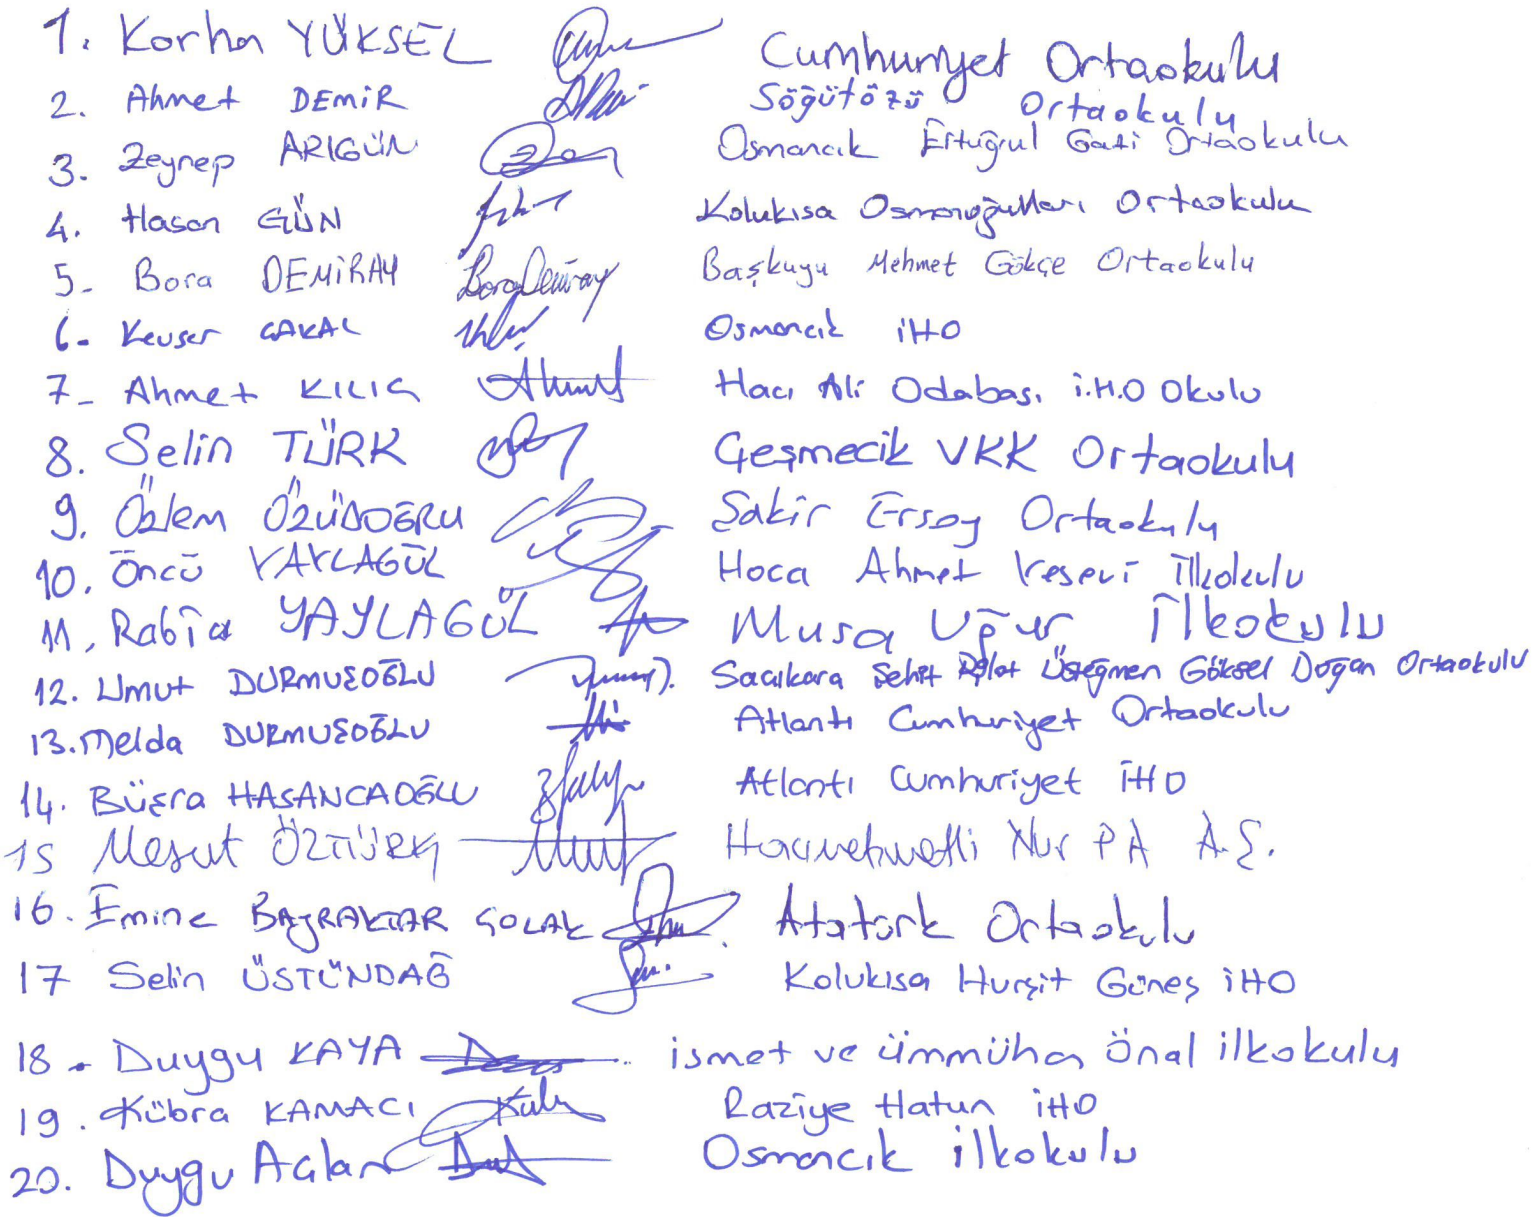 1. Korha YÜKSEL Cumhuriyet Ortaokulu
2. Ahmet DEMİR Söğütözü Ortaokulu
3. Zeynep ARIGÜN Osmancık Ertuğrul Gazi Ortaokulu
4. Hasan GÜN Kolukısa Osmanoğulları Ortaokulu
5- Bora DEMİRAY Bora Demiray Başkuyu Mehmet Gökçe Ortaokulu
6- Kevser ÇAKAL Osmancık İHO
7- Ahmet KILIÇ Ahmet Hacı Ali Odabaşı İ.H.O Okulu
8. Selin TÜRK Çeşmecik VKK Ortaokulu
9. Özlem ÖZÜDOĞRU Şakir Ersoy Ortaokulu
10. Öncü YAYLAGÜL Hoca Ahmet Yesevi İlkokulu
11. Rabia YAYLAGÜL Musa Uğur İlkokulu
12. Umut DURMUŞOĞLU Sacıkara Şehit Pilot Üsteğmen Göksel Doğan Ortaokulu
13. Melda DURMUŞOĞLU Atlantı Cumhuriyet Ortaokulu
14. Büşra HASANCAOĞLU Atlantı Cumhuriyet İHO
15 Mesut ÖZTÜRK Hacımehmetli Nur PA A.Ş.
16. Emine BAYRAKTAR ÇOLAK Atatürk Ortaokulu
17 Selin ÜSTÜNDAĞ Kolukısa Hurşit Güneş İHO
18- Duygu KAYA ismet ve ümmühan önal ilkokulu
19. Kübra KAMACI Raziye Hatun İHO
20. Duygu Aslan Osmancık ilkokulu